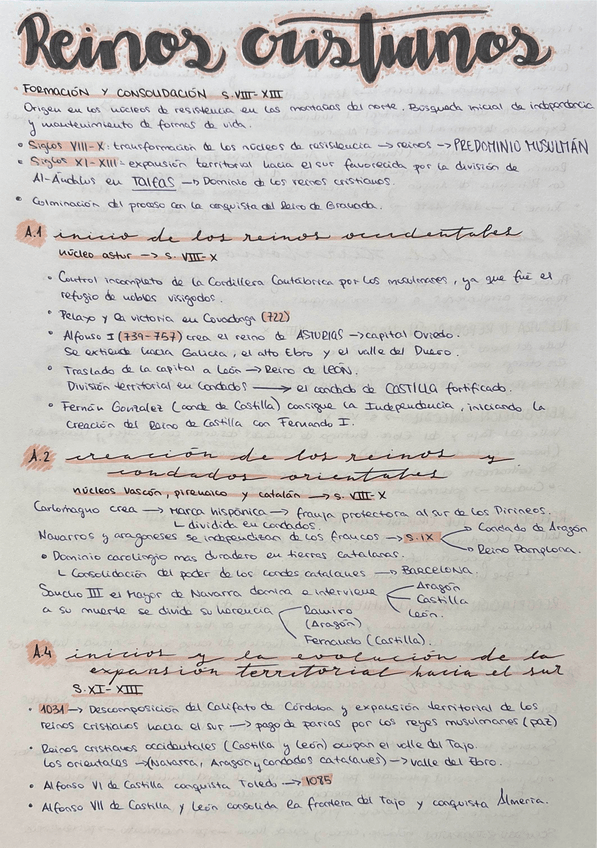 Reinos cristianos
FORMACIÓN Y CONSOLIDACIÓN S.VIII-XIII
Origen en los núcleos de resistencia en las montañas del norte. Búsqueda inicial de independencia
y mantenimiento de formas de vida.
• Siglos VIII-X: transformación de los núcleos de resistencia → reinos → PREDOMINIO MUSULMÁN
• Siglos XI-XIII: expansión territorial hacia el sur favorecida por la división de
Al-Ándalus en TAIFAS → Dominio de los reinos cristianos.
• Culminación del proceso con la conquista del Reino de Granada.
A.1 inicio de los reinos occidentales
núcleo astur → s. VIII-X
• Control incompleto de la Cordillera Cantábrica por los musulmanes, ya que fue el
refugio de nobles visigodos.
• Pelayo y la victoria en Covadonga (722)
• Alfonso I (739-757) crea el reino de ASTURIAS → capital Oviedo.
Se extiende hacia Galicia, el alto Ebro y el valle del Duero.
• Traslado de la capital a León → Reino de LEÓN.
División territorial en Condados → el condado de CASTILLA fortificado.
• Fernán Gonzalez (conde de Castilla) consigue la Independencia, iniciando la
creación del Reino de Castilla con Fernando I.
A.2 creación de los reinos y
condados orientales
núcleos vascón, pirenaico y catalán → s. VIII-X
Carlomagno crea → Marca hispónica → franja protectora al sur de los Pirineos.
└ dividida en condados.
Navarros y aragoneses se independizan de los francos → S.IX
Condado de Aragón
Reino Pamplona.
• Dominio carolingio más duradero en tierras catalanas.
└ Consolidación del poder de los condes catalanes → BARCELONA.
Sancho III el Mayor de Navarra domina e interviene
Aragón
Castilla
León.
a su muerte se divide su herencia
Ramiro
(Aragón)
Fernando (Castilla).
A.4 inicios y la evolución de la
expansión territorial hacia el sur
S.XI-XIII
• 1031 → Descomposición del Califato de Córdoba y expansión territorial de los
reinos cristianos hacia el sur → pago de parias por los reyes musulmanes (paz)
• Reinos cristianos occidentales (Castilla y León) ocupan el valle del Tajo.
Los orientales → (Navarra, Aragón y condados catalanes) → valle del Ebro.
• Alfonso VI de Castilla conquista Toledo → 1085
• Alfonso VII de Castilla y León consolida la frontera del Tajo y conquista Almería.